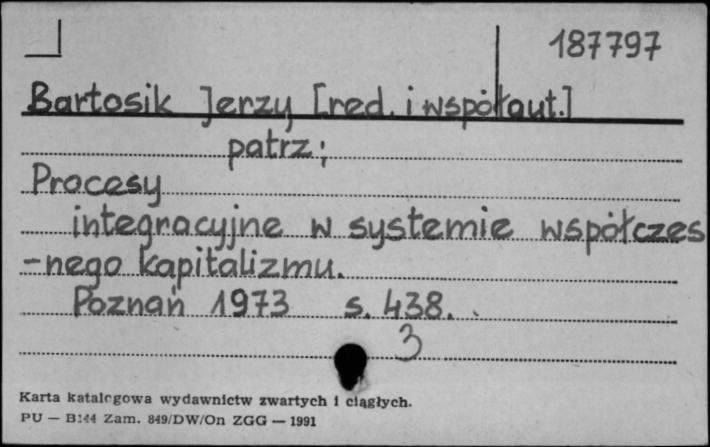 187797
Bartosik Jerzy [red. i współaut.]
patrz;
Procesy
integracyjne w systemie współczes
-nego kapitalizmu.
Poznań 1973 s. 438.
3
Karta katalogowa wydawnictw zwartych i ciągłych.
PU — B144 Zam. 849/DW/On ZGG — 1991